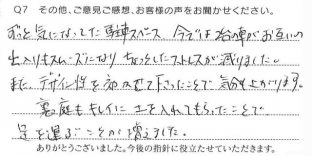 Q7 その他、ご意見ご感想、お客様の声をお聞かせください。
ずっと気になしてた駐車スペース 今では 2台の車がお互いの
出入りもスムーズになり ちょっとしたストレスが減りました。
また、デザイン性を加えさせて下さったことで 気分も上がります。
裏庭もキレイに土を入れてもらったことで
足を運ぶことが増えました。
ありがとうございました。今後の指針に役立たせていただきます。